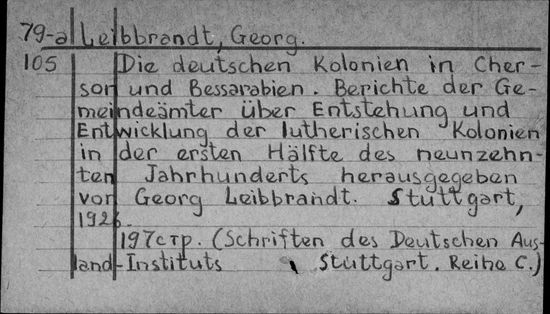 79-a Leibbrandt, Georg.
105 Die deutschen Kolonien in Cher-
son und Bessarabien. Berichte der Ge-
meindeämter über Entstehung und
Entwicklung der lutherischen Kolonien
in der ersten Hälfte des neunzehn-
ten Jahrhunderts herausgegeben
von Georg Leibbrandt. Stuttgart,
1926.
197стр. (Schriften des Deutschen Aus-
land-Instituts Stuttgart. Reihe C.)